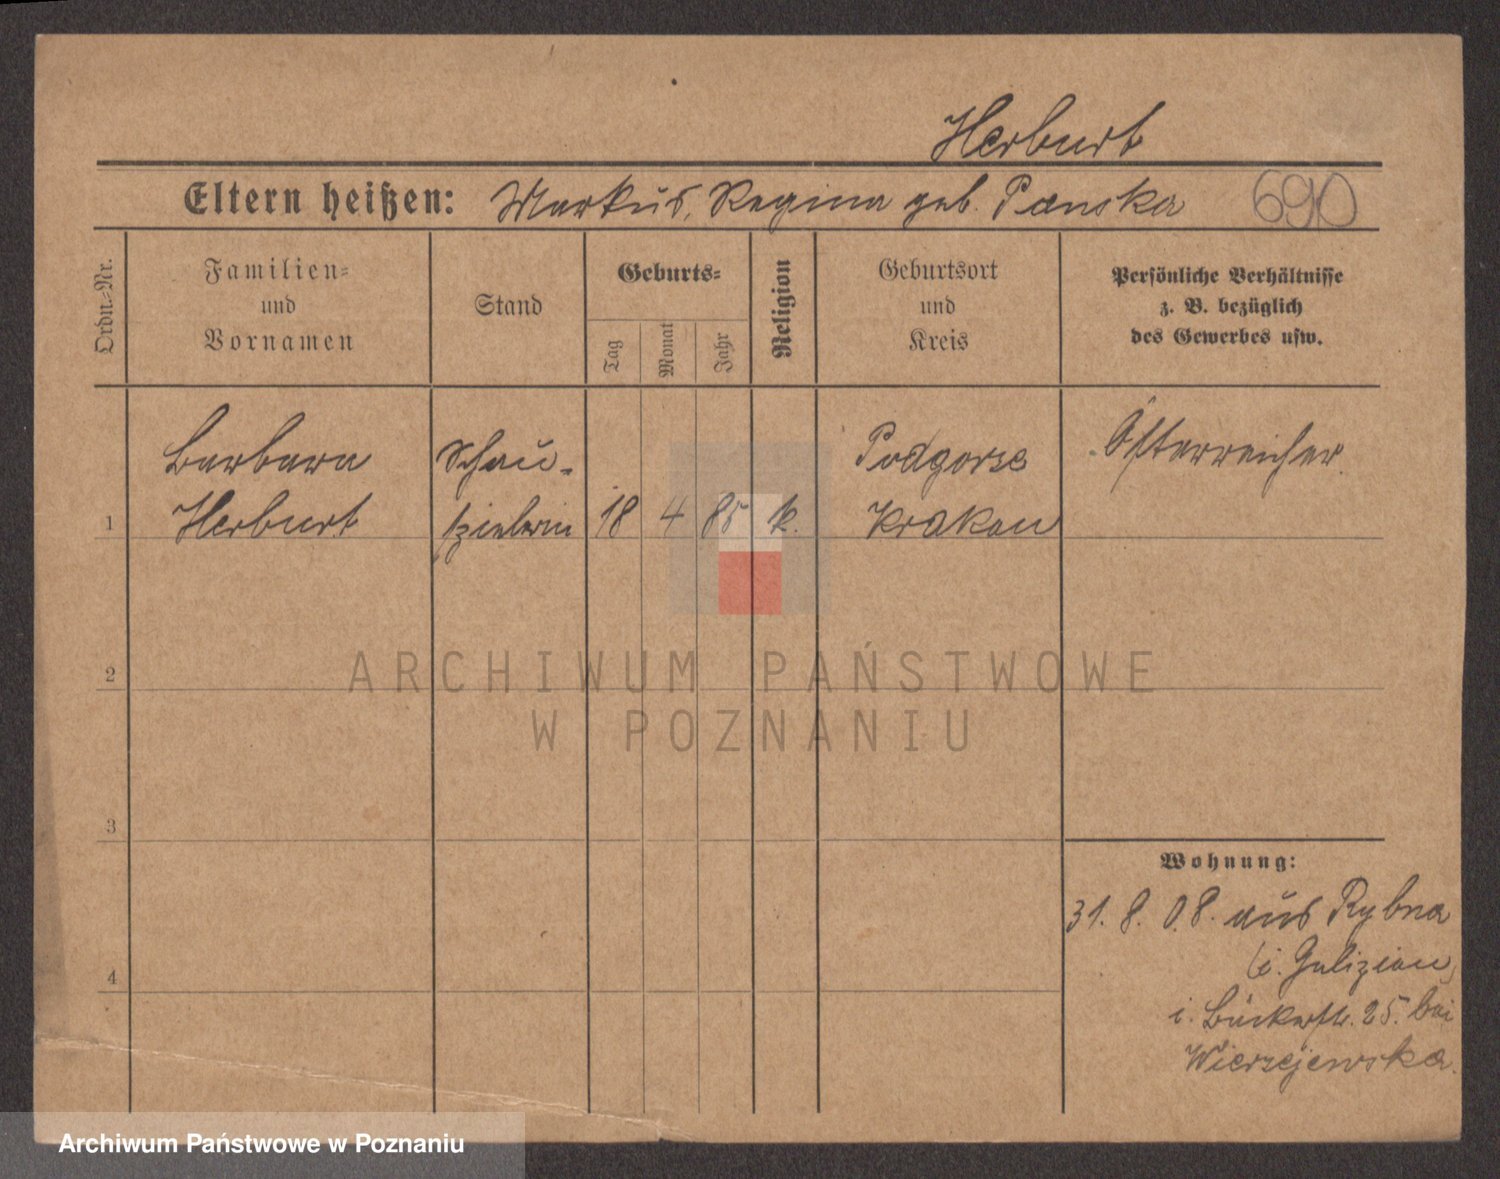 Herburt
Eltern heißen: Markus, Regina geb. Panska 690
Ordn.-Nr.
Familien-
und
Vornamen
Stand
Geburts-
Tag
Monat
Jahr
Religion
Geburtsort
und
Kreis
Persönliche Verhältnisse
z. B. bezüglich
des Gewerbes usw.
Barbara Schau- Podgorze Österreicher.
1 Herburt spielerin 18 4 85 k. Krakau
2
3
4
Wohnung:
31. 8. 08. aus Rybna
(i. Galizien)
i. Bäckerstr. 25. bei
Wierzejewska.
ARCHIWUM PAŃSTWOWE
W POZNANIU
Archiwum Państwowe w Poznaniu